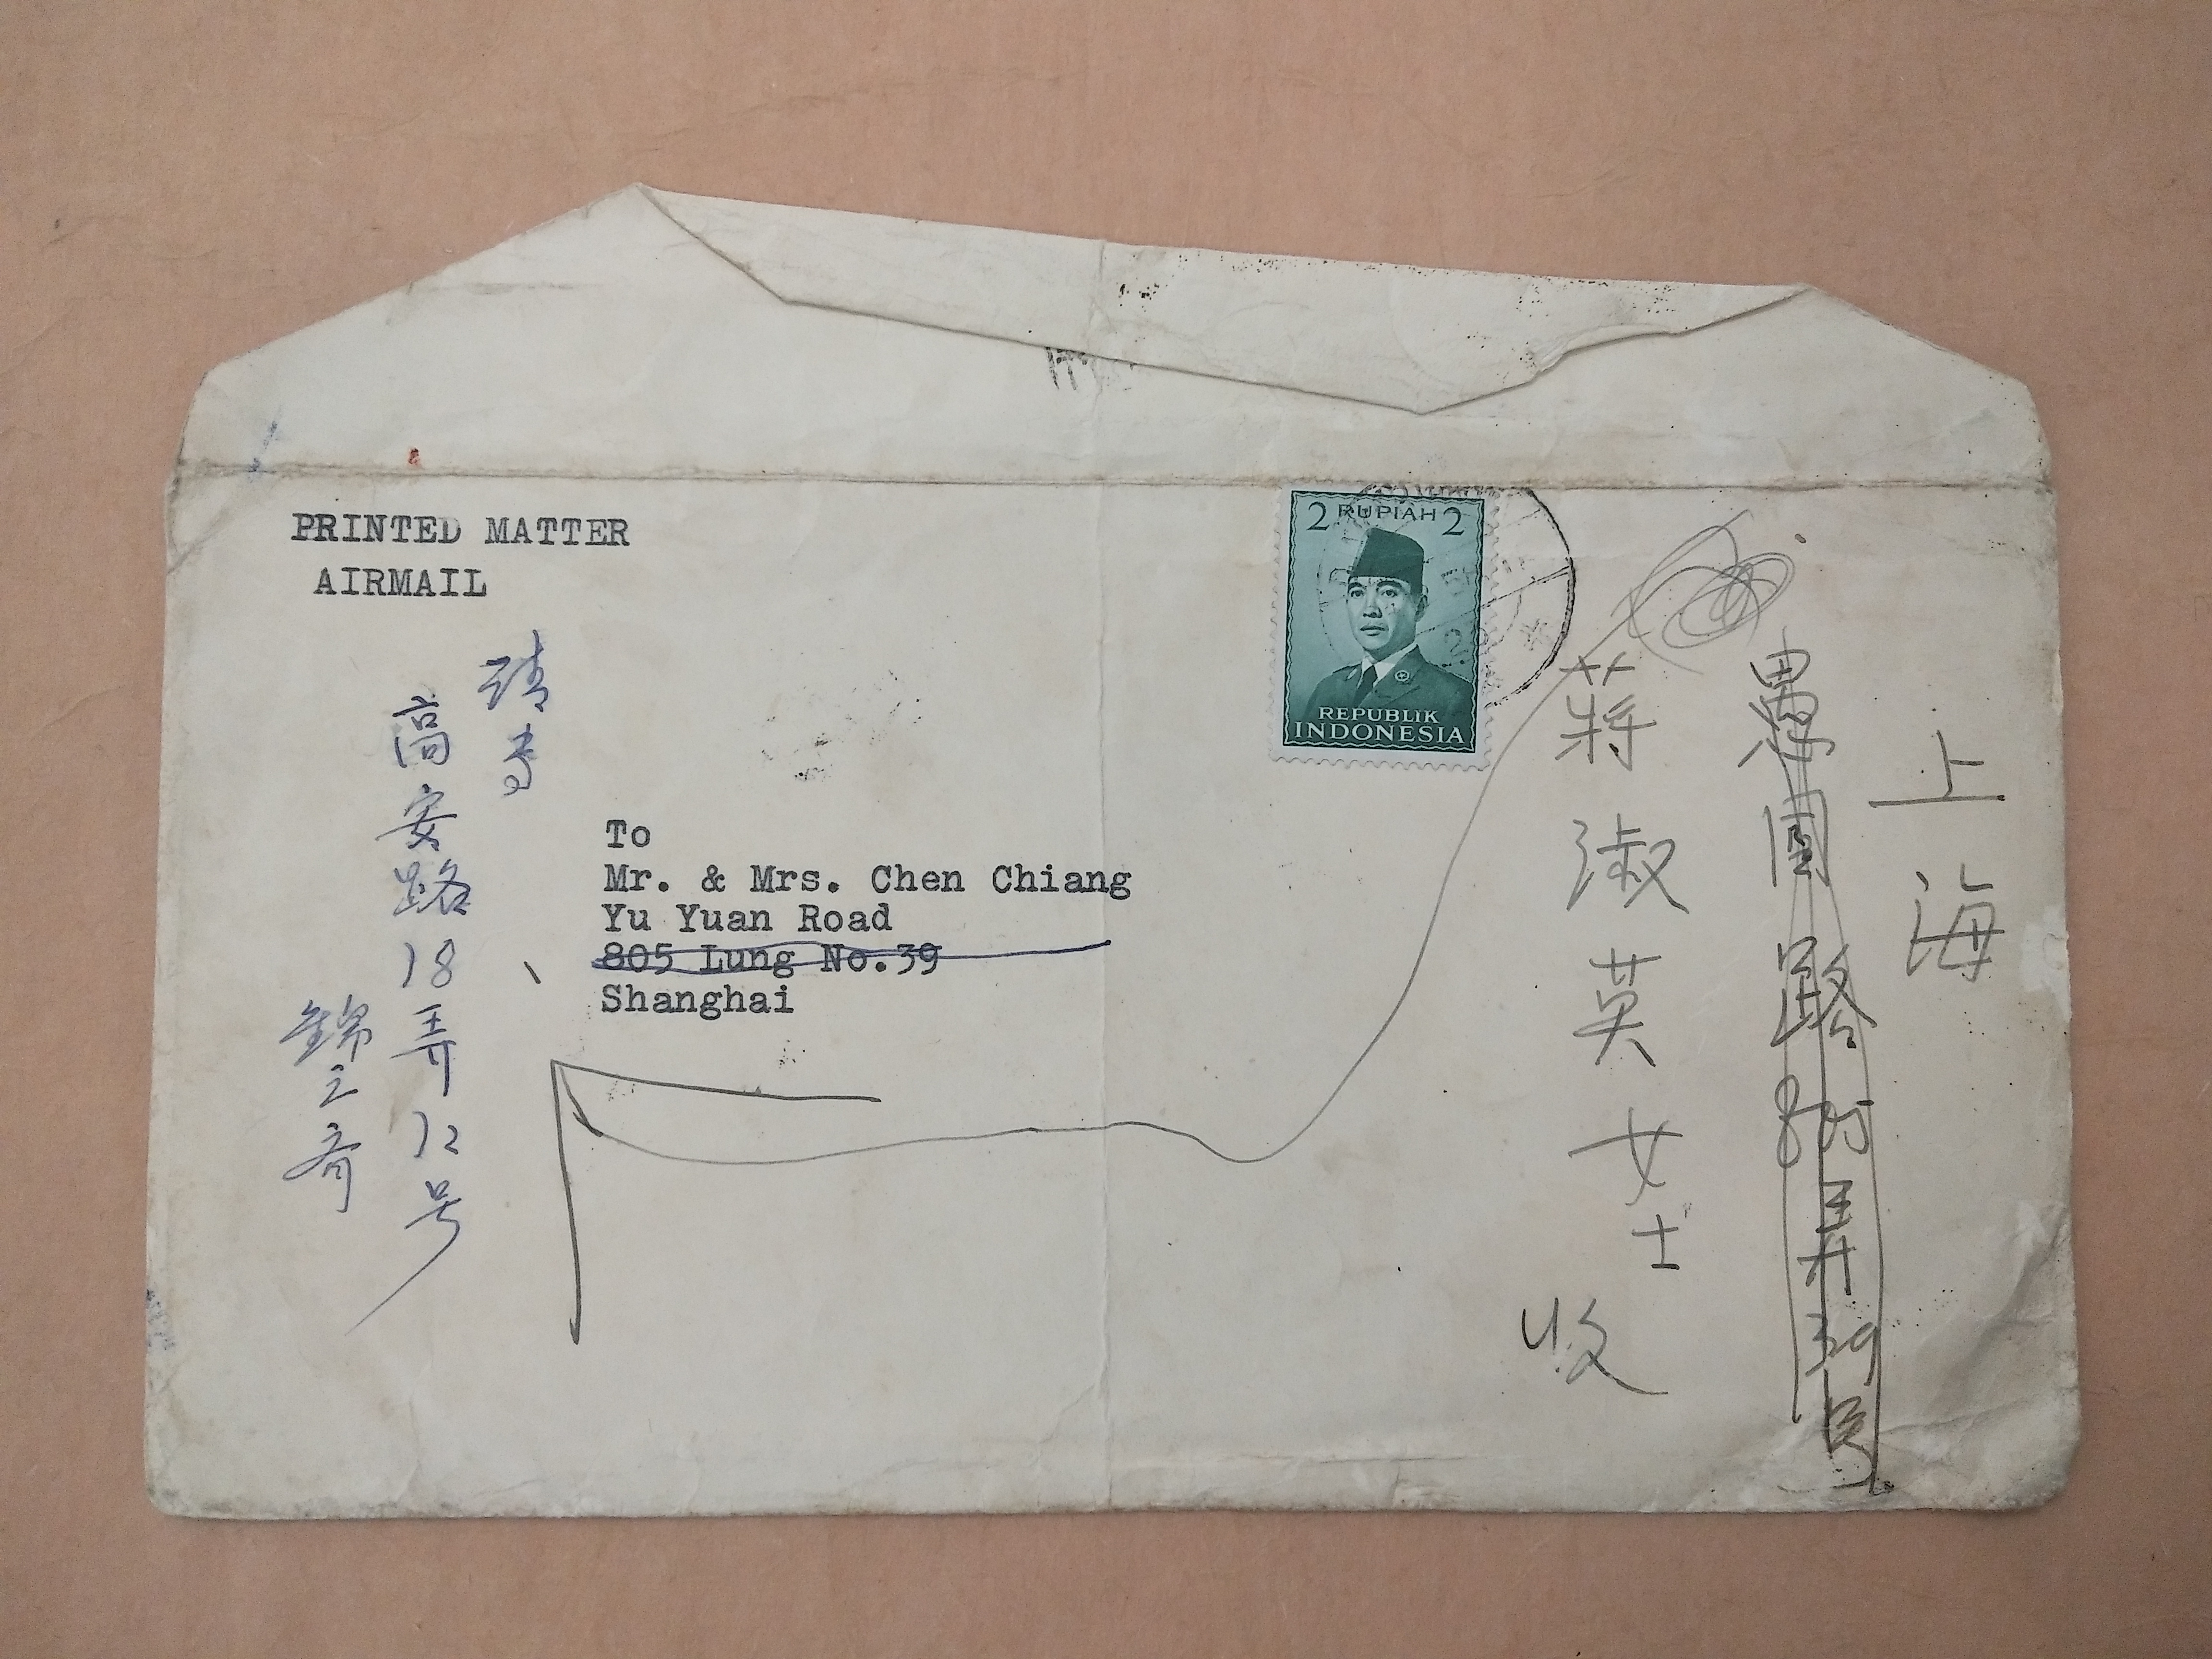 PRINTED MATTER
AIRMAIL
2 RUPIAH 2
REPUBLIK
INDONESIA
To
Mr. & Mrs. Chen Chiang
Yu Yuan Road
805 Lung No.39
Shanghai
上海
愚園路805弄39号
蒋淑英女士
收
高安路18弄12号